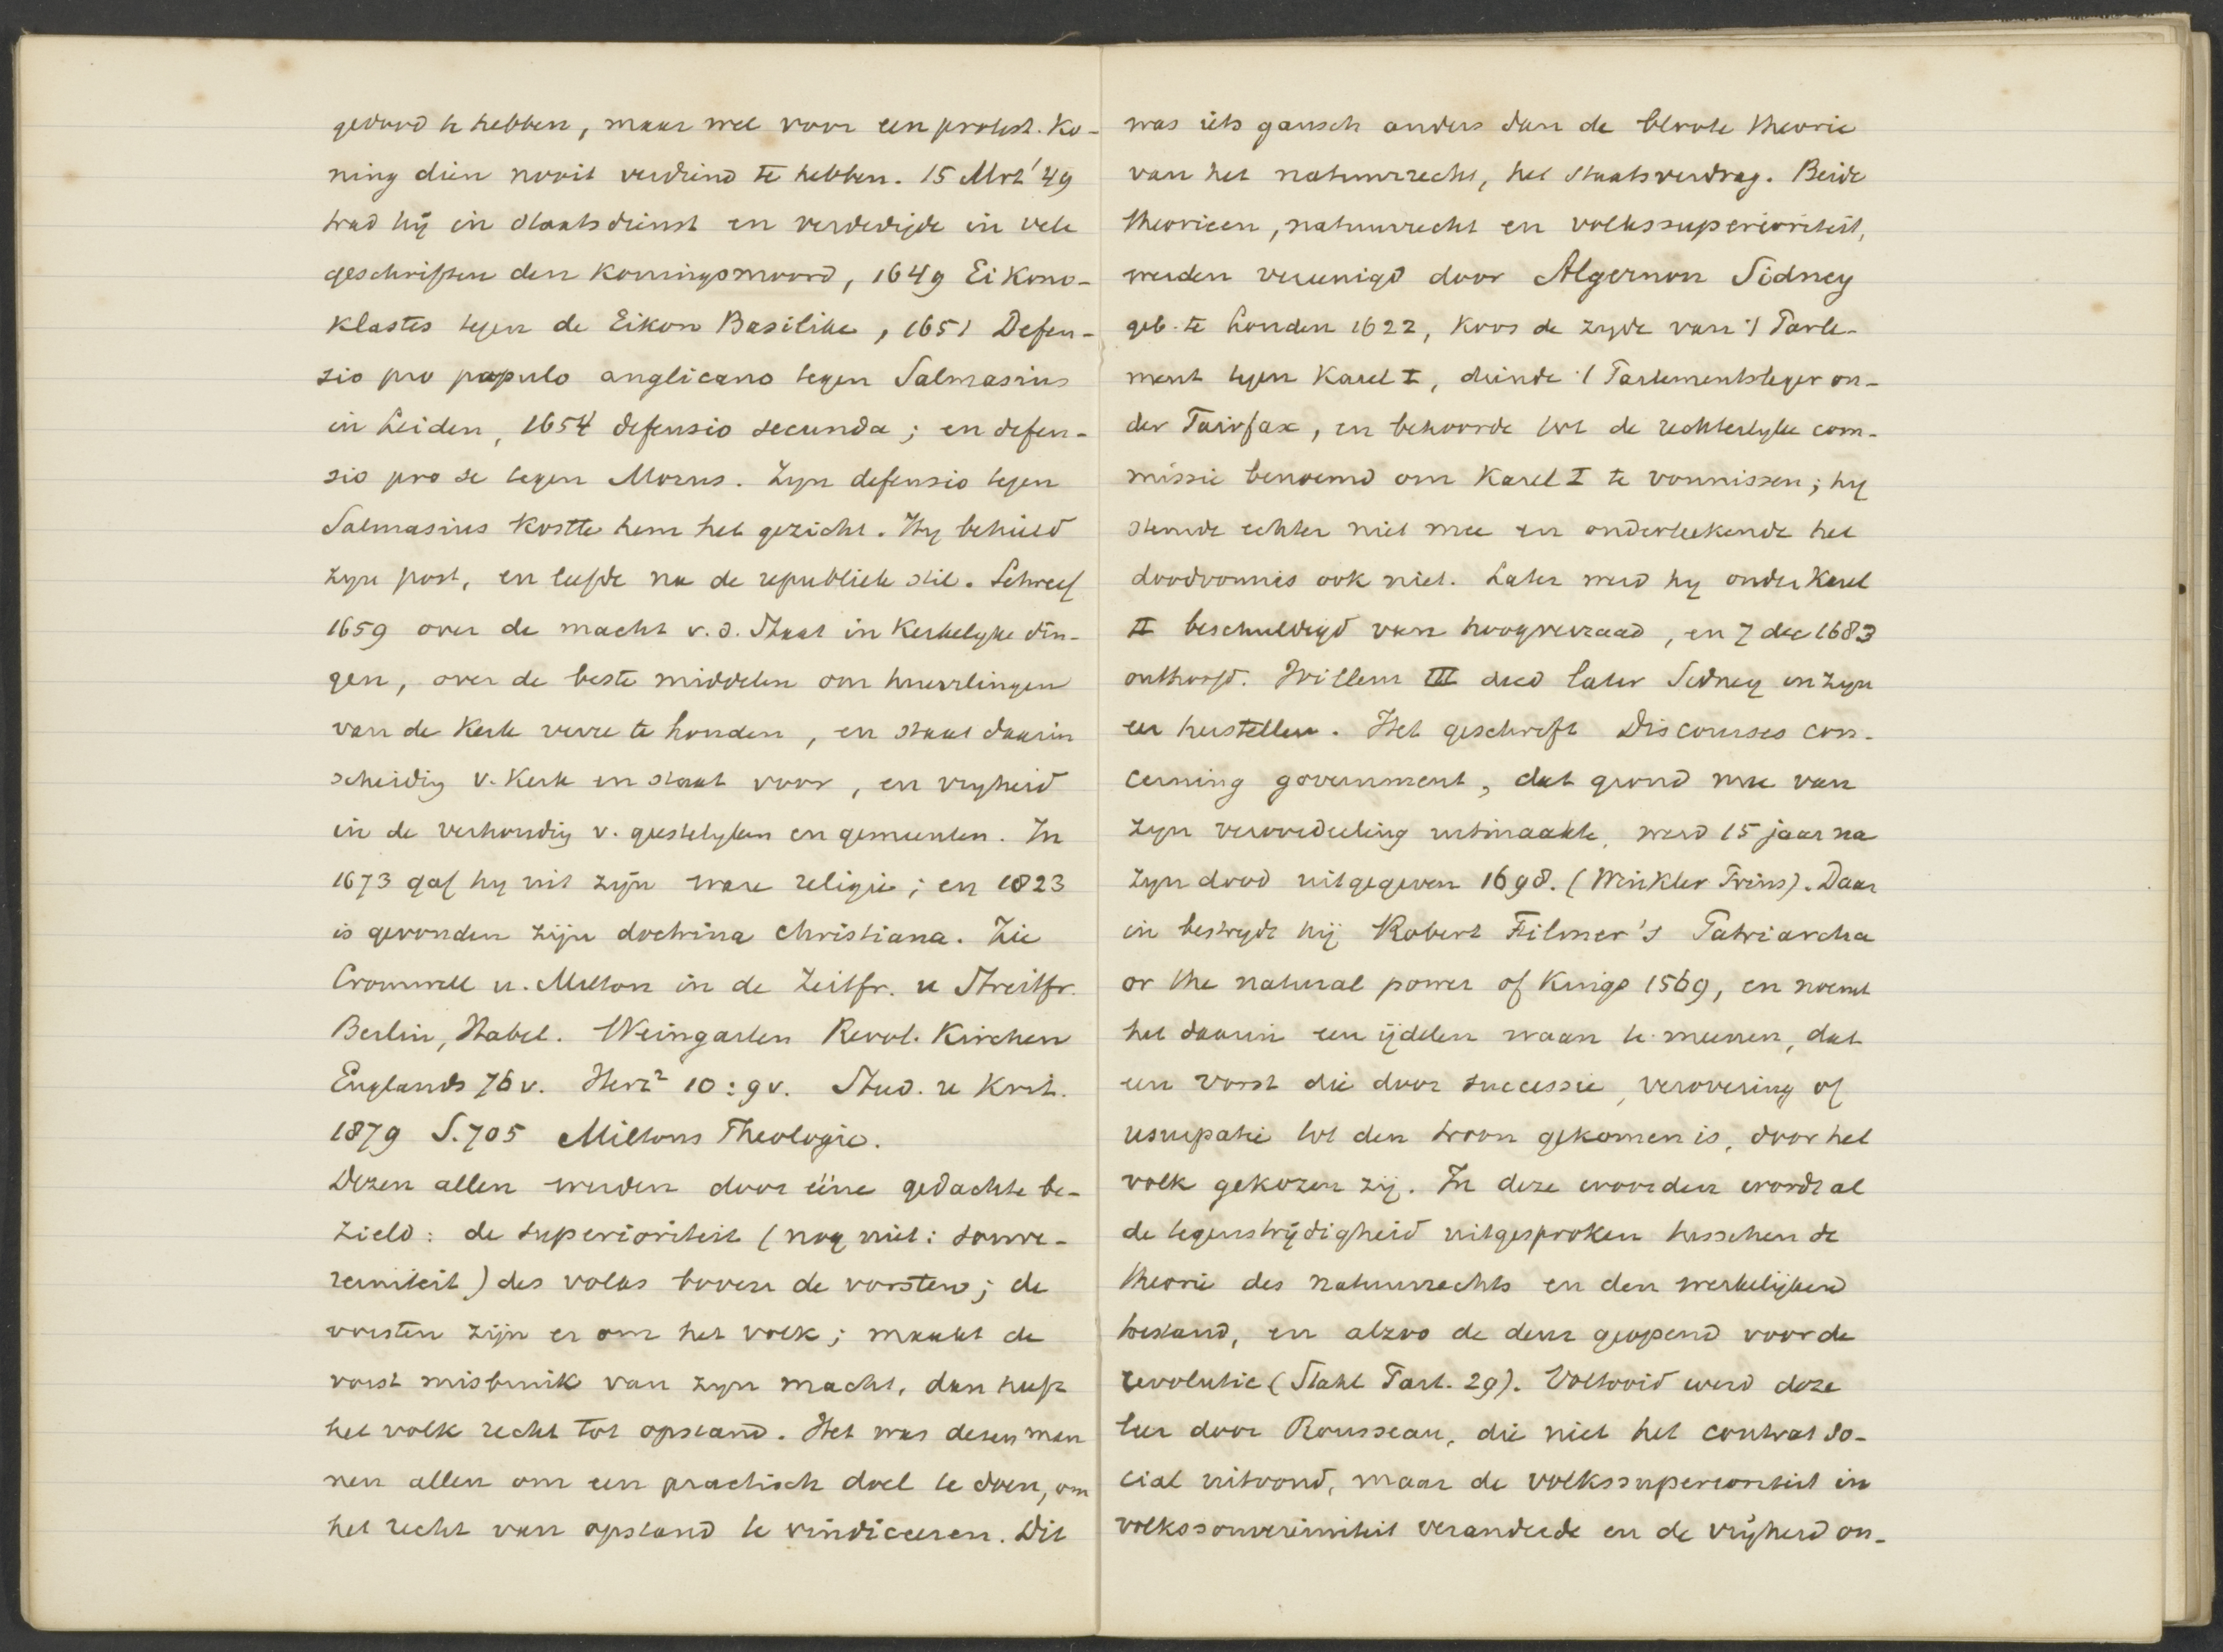 gedood te hebben, maar wel voor een protest. Ko-
ning dien nooit verdiend te hebben. 15 Mrt '49
trad hij in staatsdienst en verdedigde in vele
geschriften den Koningsmoord, 1649 Eikono-
klastes tegen de Eikon Basilike, 1651 Defen-
sio pro populo anglicano tegen Salmasius
in Leiden, 1654 defensio secunda; en defen-
sio pro se tegen Morus. Zyn defensio tegen
Salmasius kostte hem het gezicht. Hy behield
zyn post, en leefde na de republiek stil. Schreef
1659 over de macht v.d. Staat in Kerkelyke din-
gen, over de beste middelen om huurlingen
van de Kerk verre te houden, en staat daarin
scheidig v. Kerk en staat voor, en vryheid
in de verhoudig v. geestelyken en gemeenten. In
1673 gaf hy uit zijn ware religie; en 1823
is gevonden zijn doctrina christiana. Zie
Cromwell u. Milton in de Zeitfr. u Streitfr.
Berlin, Habel. Weingarten Revol. Kirchen
Englands 76v. Herz² 10:9v. Stud. u Krit.
1879 S.705 Miltons Theologie.
Dezen allen werden door ééne gedachte be-
zield: de superioriteit (nog niet: souve-
reiniteit) des volks boven de vorsten; de
vorsten zijn er om het volk; maakt de
vorst misbruik van zyn macht, dan heeft
het volk recht tot opstand. Het was dezen man
nen allen om een practisch doel te doen, om
het recht van opstand te vindiceeren. Dit
was iets gansch anders dan de bloote theorie
van het natuurrecht, het staatsverdrag. Beide
theorieen, natuurrecht en volkssuperioriteit,
werden vereenigd door Algernon Sidney
geb. te Londen 1622, koos de zyde van 't Parle-
ment tegen Karel I, diende 't Parlementsleger on-
der Fairfax, en behoorde tot de rechterlyke com-
missie benoemd om Karel I te vonnissen; hy
stemde echter niet mee en onderteekende het
doodvonnis ook niet. Later werd hy onder Karel
II beschuldigd van hoogverraad, en 7 dec 1683
onthoofd. Willem III deed later Sidney in zyn
eer herstellen. Het geschrift Discourses con-
cerning government, dat grond mee van
zyn veroordeeling uitmaakte, werd 15 jaar na
zyn dood uitgegeven 1698. (Winkler Prins). Daar
in bestrydt hij Robert Filmer's Patriarcha
or the natural power of Kings 1569, en noemt
het daarin een ijdelen waan te meenen, dat
een vorst die door successie, verovering of
usurpatie tot den troon gekomen is, door het
volk gekozen zij. In deze woorden wordt al
de tegenstrijdigheid uitgesproken tusschen de
theorie des natuurrechts en den werkelijken
toestand, en alzoo de deur geopend voor de
revolutie (Stahl Part. 29). Voltooid werd deze
leer door Rousseau, die niet het contrat so-
cial uitvond, maar de volkssuperioriteit in
volkssouvereiniteit veranderde en de vrijheid on-